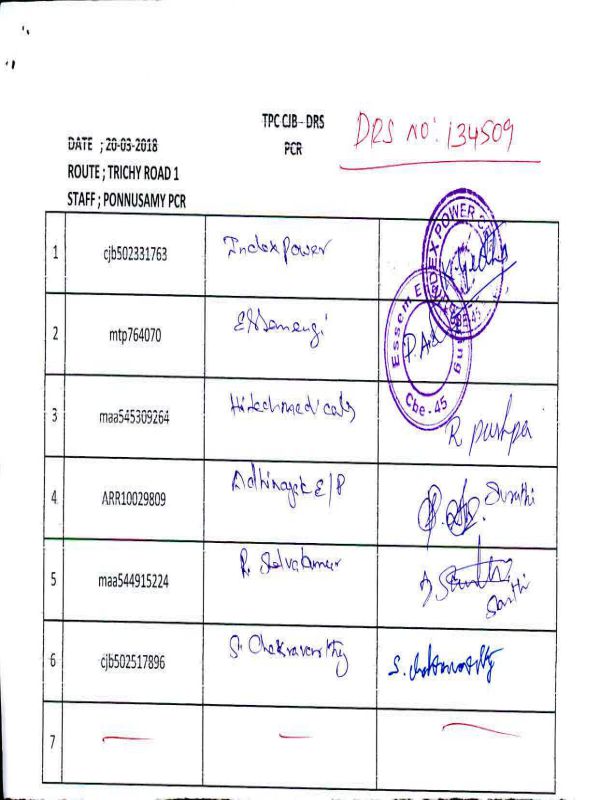 TPC CJB - DRS
PCR
DRS no: 134509
DATE ; 20-03-2018
ROUTE ; TRICHY ROAD 1
STAFF ; PONNUSAMY PCR
1 cjb502331763 Index Power
INDEX POWER
2 mtp764070
Essem
Cbe - 45
3 maa545309264 Hitechmedicals R pushpa
4 ARR10029809
5 maa544915224 R. Selvakumar
Santhi
6 cjb502517896 S. Chakravorthy
7